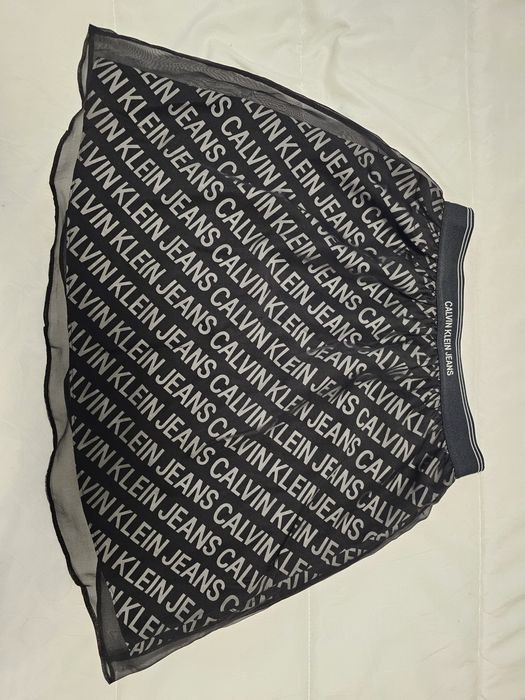 CALVIN KLEIN JEANS
CALVIN KLEIN JEANS CALVIN KLEIN JEANS
CALVIN KLEIN JEANS CALVIN KLEIN JEANS
CALVIN KLEIN JEANS CALVIN KLEIN JEANS
CALVIN KLEIN JEANS CALVIN KLEIN JEANS
CALVIN KLEIN JEANS CALVIN KLEIN JEANS
CALVIN KLEIN JEANS CALVIN KLEIN JEANS
CALVIN KLEIN JEANS CALVIN KLEIN JEANS